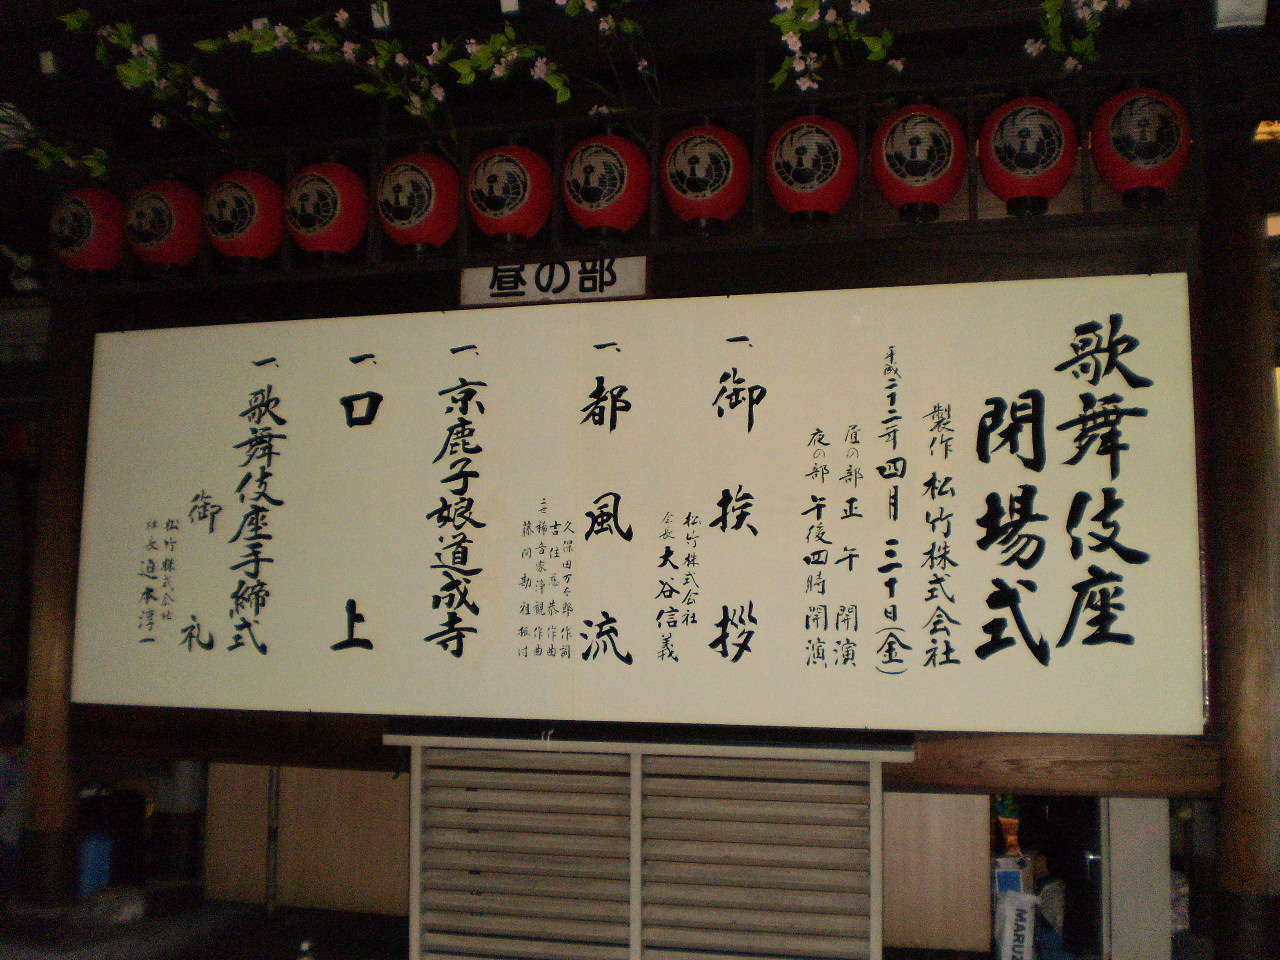 昼の部
歌舞伎座
閉場式
製作 松竹株式会社
平成二十二年四月三十日(金)
昼の部 正午 開演
夜の部 午後四時 開演
一、御挨拶
松竹株式会社
会長 大谷信義
一、都風流
久保田万太郎 作詞
吉住慈恭 作曲
二世 稀音家浄観 作曲
藤間勘祖 振付
一、京鹿子娘道成寺
一、口上
一、歌舞伎座手締式
御礼
松竹株式会社
社長 迫本淳一
MARUZ